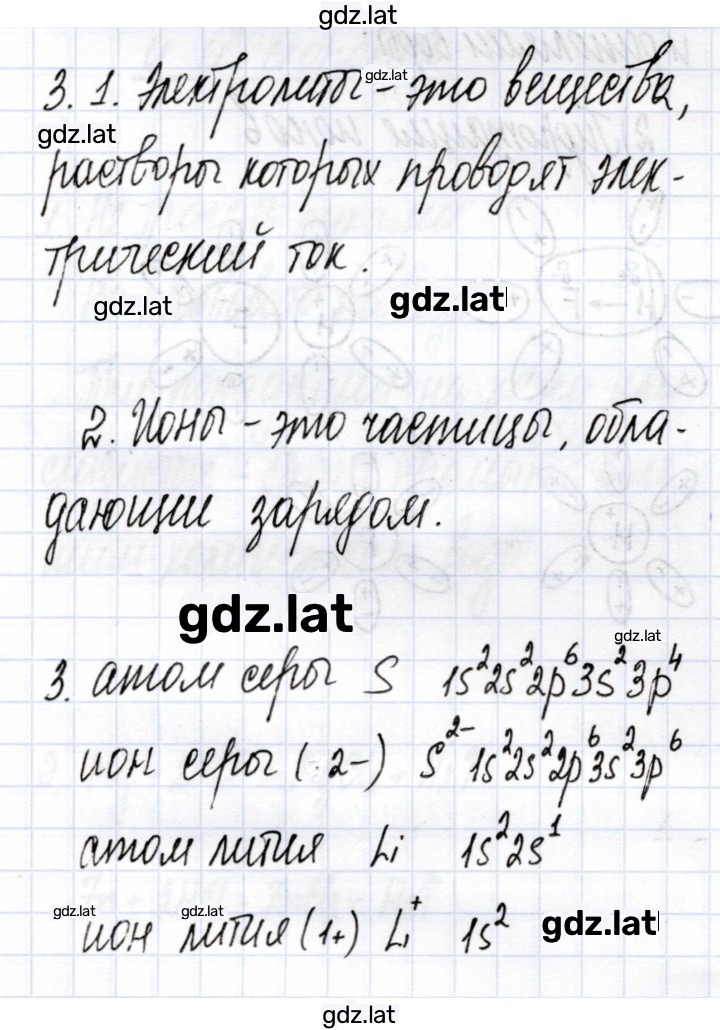 gdz.lat
3. 1. Электролиты - это вещества,
gdz.lat
gdz.lat
растворы которых проводят элек-
трический ток.
gdz.lat
gdz.lat
2. Ионы - это частицы, обла-
дающие зарядом.
gdz.lat
gdz.lat
3. атом серы S 1s²2s²2p⁶3s²3p⁴
ион серы (2-) S²⁻ 1s²2s²2p⁶3s²3p⁶
атом лития Li 1s²2s¹
gdz.lat
gdz.lat
ион лития (1+) Li⁺ 1s²
gdz.lat
gdz.lat